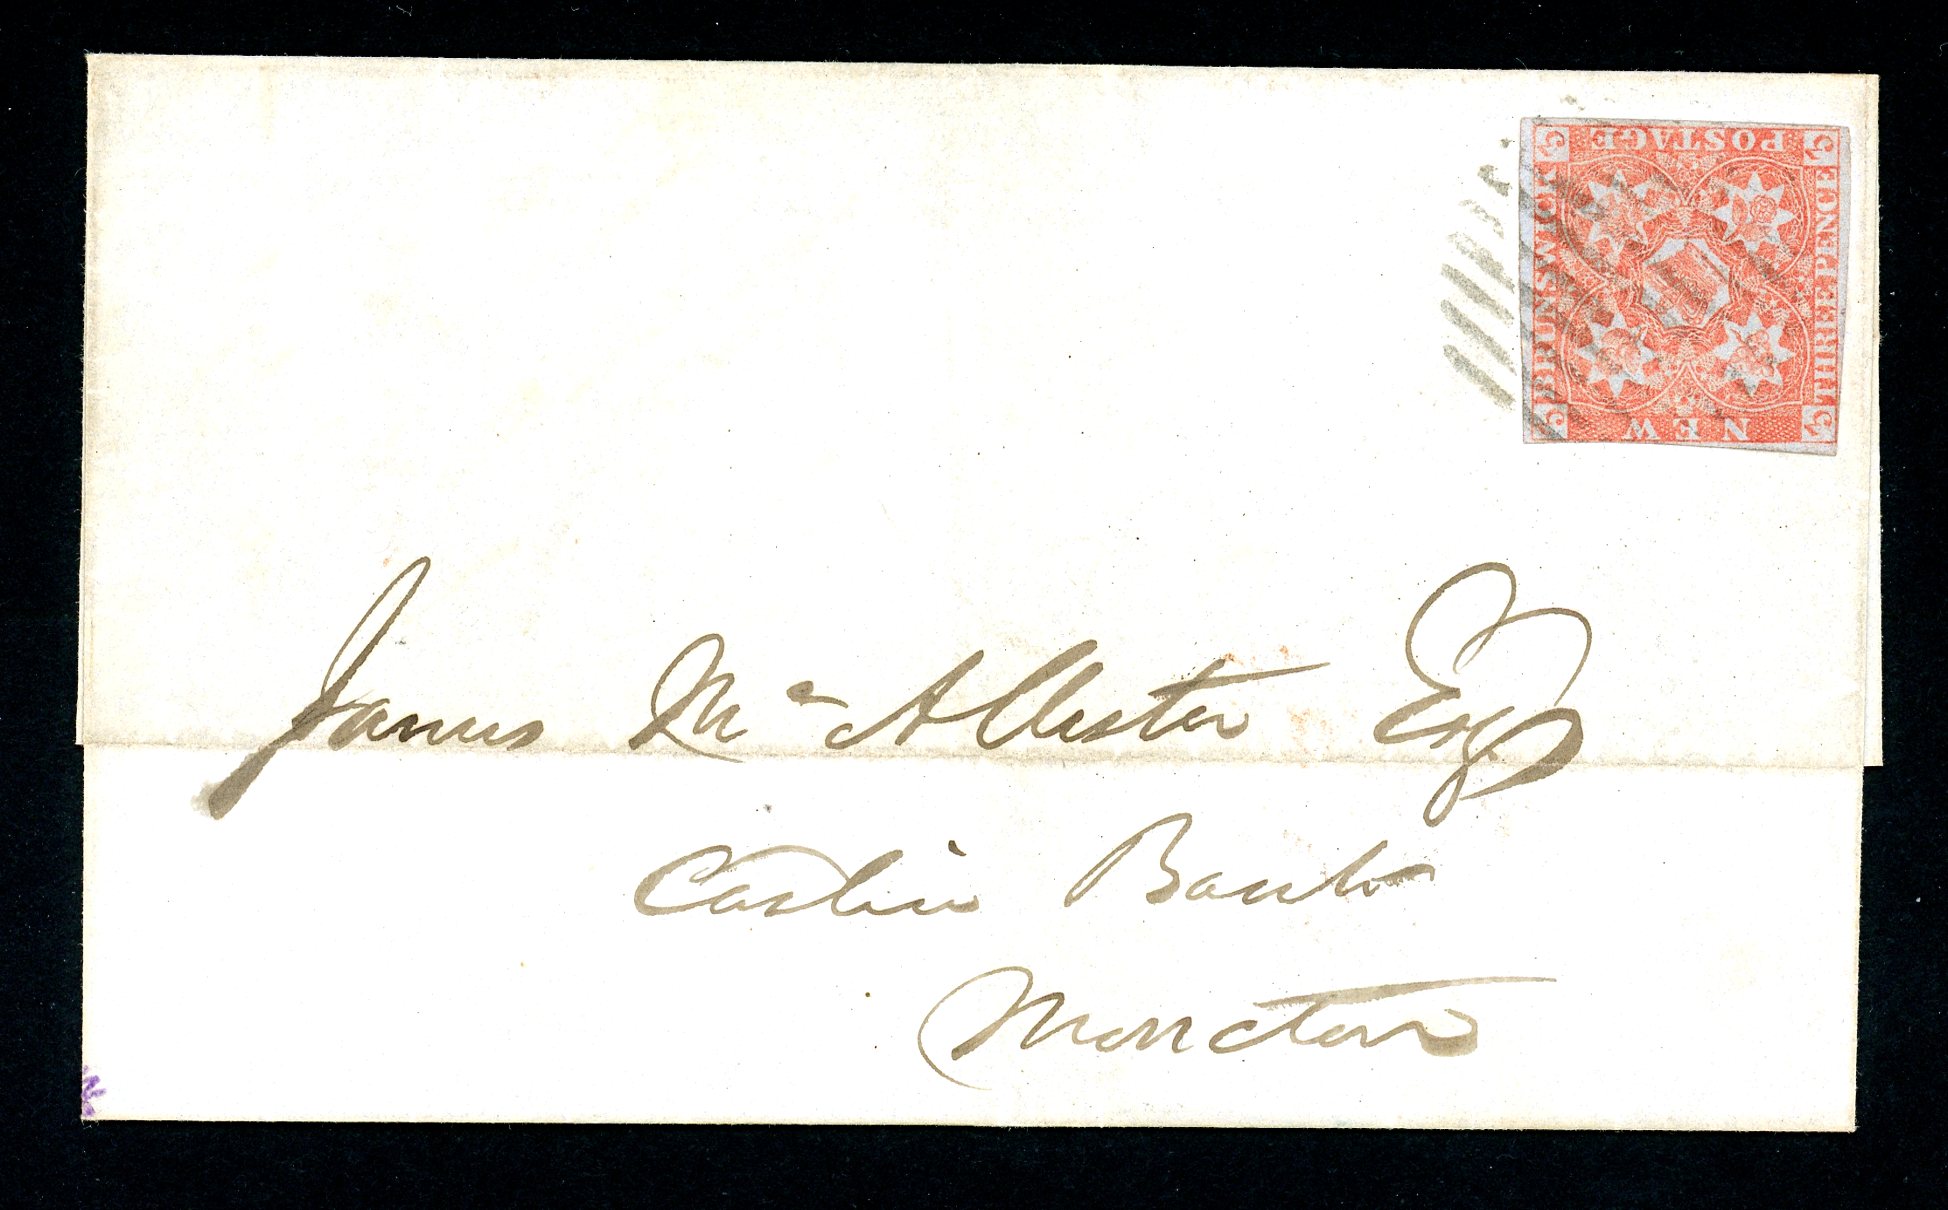 POSTAGE
BRUNSWICK
THREE PENCE
NEW
3 3 3 3
James McAllister Esq
Cashier Bank
Moncton